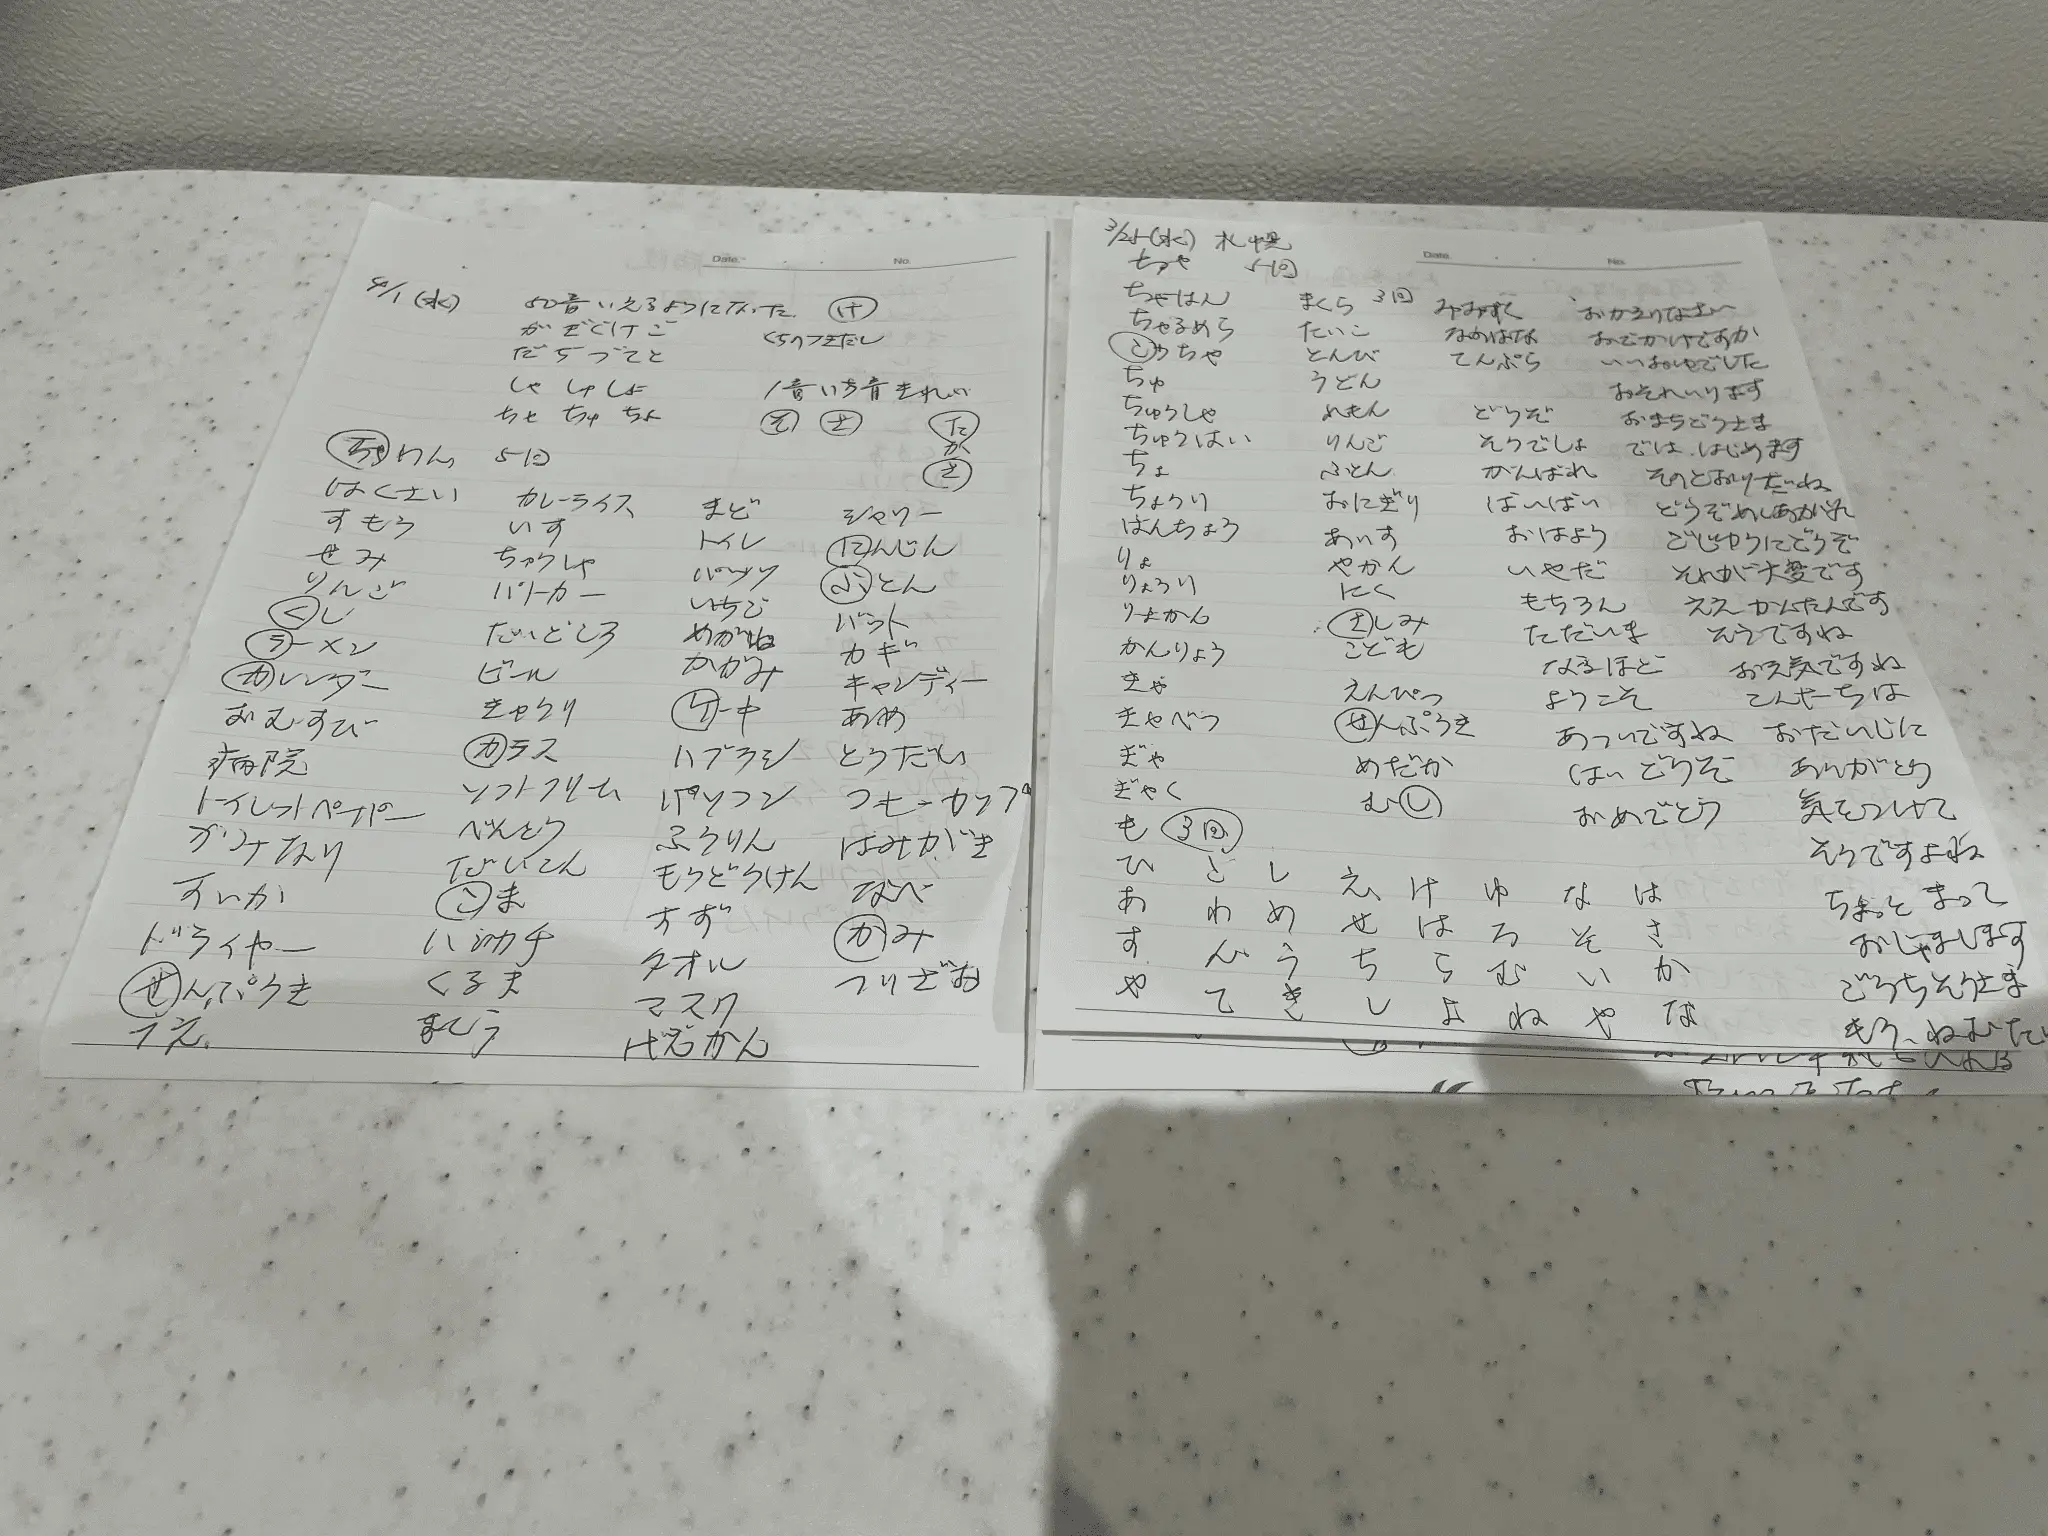 Date. ・ ・ No.
4/1(水) 50音いえるようになった け
がぎぐげご くちのつきだし
だぢづでど
しゃ しゅ しょ 1音いち音きれい
ちゃ ちゅ ちょ そ さ た
か
さ
ちゃわん 5回
はくさい カレーライス まど シャワー
すもう いす トイレ にんじん
せみ ちゅうしゃ パンツ ふとん
りんご パトカー いちご バット
くし だいどころ めがね カギ
ラーメン ビール かがみ キャンディー
カレンダー きゅうり ケーキ あめ
おむすび ガラス ハブラシ とうだい
病院 ソフトクリーム パソコン コーヒーカップ
トイレットペーパー べんとう ふうりん はみがき
かみなり だいこん もうどうけん なべ
すいか こま すず かみ
ドライヤー ハンカチ タオル つりざお
せんぷうき くるま マスク
つえ
Date. ・ ・ No.
3/25(水) 札幌
ちゃ 5回
ちゃはん まくら 3回 みみずく おかえりなさい
ちゃるめら たいこ なのはな おでかけですか
こうちゃ とんび てんぷら いいおゆでした
ちゅ うどん おそれいります
ちゅうしゃ れもん どうぞ おまちどうさま
ちゅうはい りんご そうでしょ では、はじめます
ちょ ふとん がんばれ そのとおりだね
ちょうり おにぎり ばいばい どうぞめしあがれ
はんちょう あいす おはよう ごじゆうにどうぞ
りょ やかん いやだ それが大変です
りょうり にく もちろん ええ かんたんです
りょかん さしみ ただいま そうですね
かんりょう こども なるほど お元気ですね
きゃ えんぴつ ようこそ こんにちは
きゃべつ せんぷうき あついですね おだいじに
ぎゃ めだか はい どうぞ ありがとう
ぎゃく むし おめでとう 気をつけて
も 3回 そうですよね
ひ ご し え け ゆ な は ちょっと まって
あ わ め せ は ろ そ さ おじゃまします
す ん う ち ら む い か ごちそうさま
や て き し よ ね や な もう、ねむたい